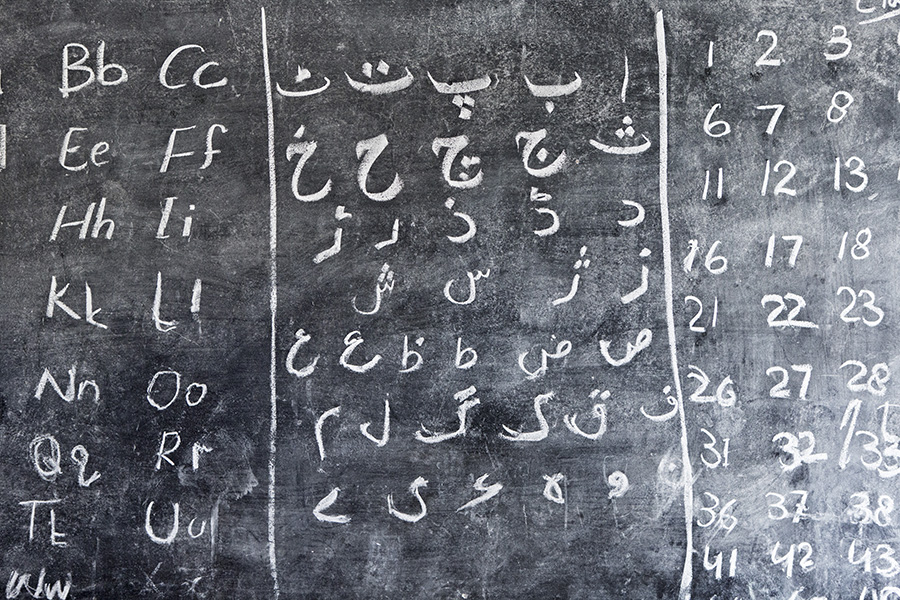 Bb Cc
Ee Ff
Hh Ii
Kk Ll
Nn Oo
Qq Rr
Tt Uu
Ww Xx
ا ب پ ت ٹ
ث ج چ ح خ
د ڈ ذ ر ڑ
ز ژ س ش
ص ض ط ظ ع غ
ف ق ک گ ل م
و ہ ء ی ے
1 2 3
6 7 8
11 12 13
16 17 18
21 22 23
26 27 28
31 32 33
36 37 38
41 42 43